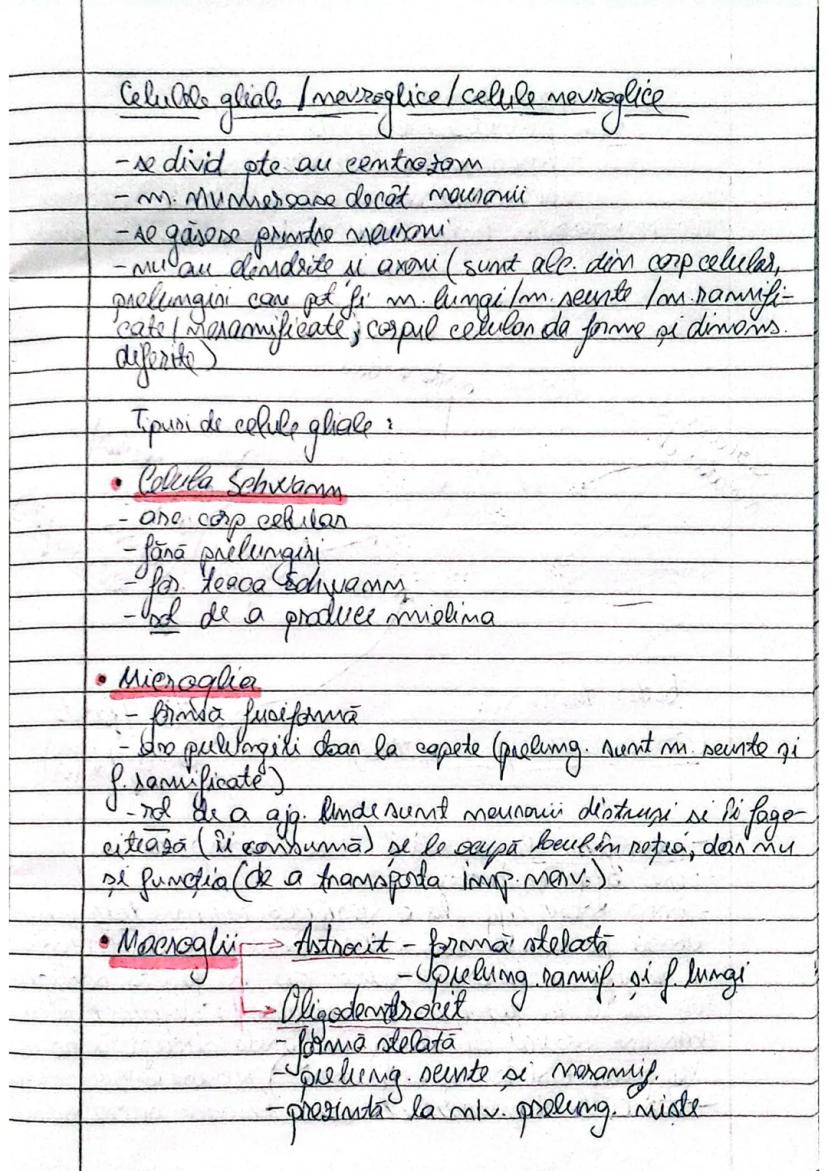 Celulele gliale / nevroglice / celule nevroglice
- se divid ptc au centrozom
- m. numeroase decât neuronii
- se găsesc printre neuroni
- nu au dendrite și axoni (sunt alc. din corp celular,
prelungiri care pot fi m. lungi / m. scurte / m. ramifi-
cate / neramificate; corpul celular de forme și dimens.
diferite)
Tipuri de celule gliale :
• Celula Schwann
- are corp celular
- fără prelungiri
- for. teaca Schwann
- rol de a produce mielina
• Microglia
- formă fusiformă
- are prelungiri doar la capete (prelung. sunt m. scurte și
f. ramificate)
- rol de a ajg. unde sunt neuronii distruși și îi fago-
citează (îi consumă) și le ocupă locul în rețea, dar nu
și funcția (de a transporta imp. nerv.)
• Macroglii → Astrocit - formă stelată
- prelung. ramif. și f. lungi
→ Oligodendrocit
- formă stelată
- prelung. scurte și neramif.
- prezintă la niv. prelung. niște